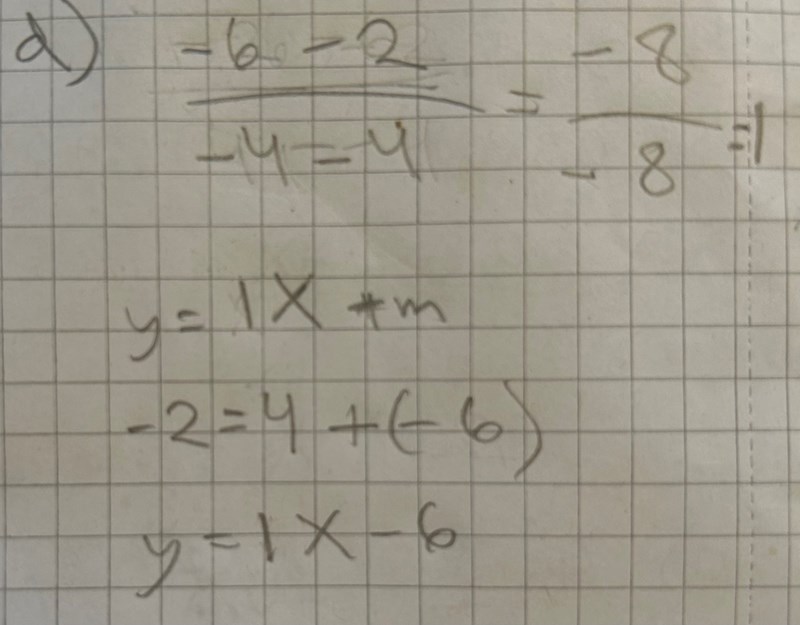 d) -6-2/-4=4 = -8/-8 =1
y=1X+m
-2=4+(-6)
y=1X-6